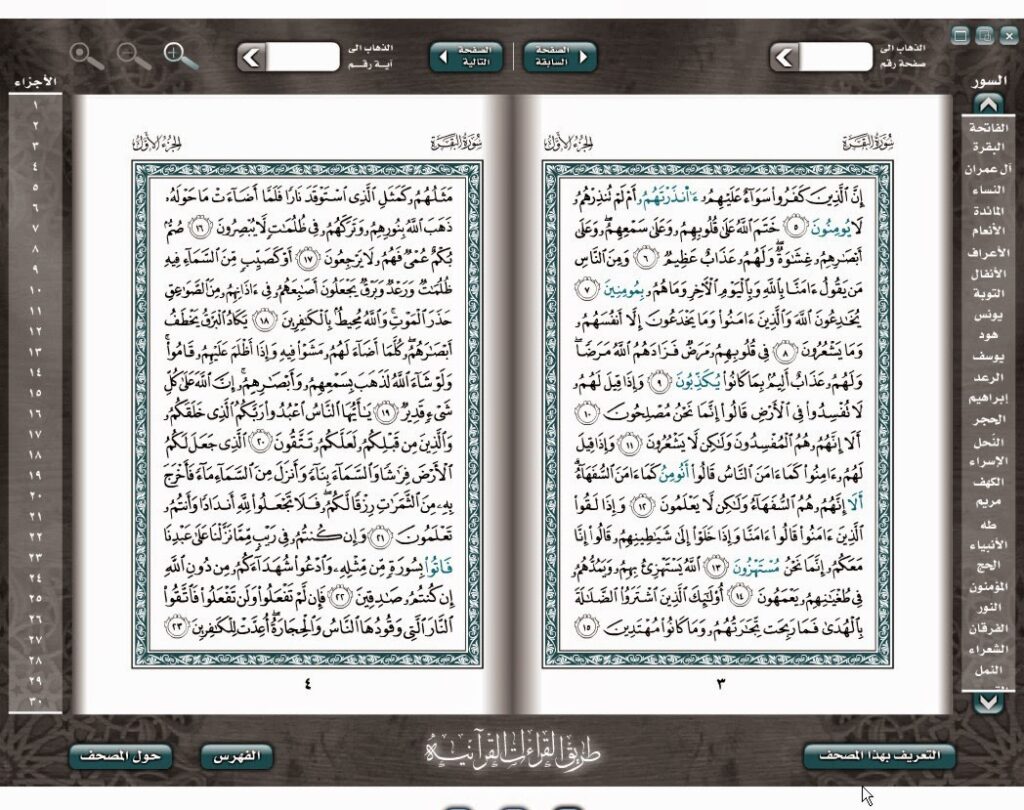 الذهاب الى
آية رقم
الصفحة التالية
الصفحة السابقة
الذهاب الى
صفحة رقم
السور
الفاتحة
البقرة
آل عمران
النساء
المائدة
الأنعام
الأعراف
الأنفال
التوبة
يونس
هود
يوسف
الرعد
إبراهيم
الحجر
النحل
الإسراء
الكهف
مريم
طه
الأنبياء
الحج
المؤمنون
النور
الفرقان
الشعراء
النمل
سُورَةُ الْبَقَرَةِ
الجُزْءُ الأَوَّلُ
إِنَّ ٱلَّذِينَ كَفَرُواْ سَوَآءٌ عَلَيْهِمُۥٓ ءَا۬نذَرْتَهُمُۥٓ أَمْ لَمْ تُنذِرْهُمُۥ
لَا يُومِنُونَ ٥ خَتَمَ ٱللَّهُ عَلَىٰ قُلُوبِهِمُۥ وَعَلَىٰ سَمْعِهِمُۥۖ وَعَلَىٰٓ
أَبْصَٰرِهِمُۥ غِشَٰوَةٌۖ وَلَهُمُۥ عَذَابٌ عَظِيمٌ ٦ وَمِنَ ٱلنَّاسِ
مَن يَقُولُ ءَامَنَّا بِٱللَّهِ وَبِٱلْيَوْمِ ٱلْأٓخِرِ وَمَا هُمُۥ بِمُومِنِينَ ٧
يُخَٰدِعُونَ ٱللَّهَ وَٱلَّذِينَ ءَامَنُواْ وَمَا يَخْدَعُونَ إِلَّآ أَنفُسَهُمُۥ
وَمَا يَشْعُرُونَ ٨ فِي قُلُوبِهِمُۥ مَرَضٌ فَزَادَهُمُ ٱللَّهُ مَرَضًاۖ
وَلَهُمُۥ عَذَابٌ أَلِيمٌۢ بِمَا كَانُواْ يُكَذِّبُونَ ٩ وَإِذَا قِيلَ لَهُمُۥ
لَا تُفْسِدُواْ فِي ٱلْأَرْضِ قَالُوٓاْ إِنَّمَا نَحْنُ مُصْلِحُونَ ١٠
أَلَآ إِنَّهُمُۥ هُمُ ٱلْمُفْسِدُونَ وَلَٰكِن لَّا يَشْعُرُونَ ١١ وَإِذَا قِيلَ
لَهُمُۥٓ ءَامِنُواْ كَمَآ ءَامَنَ ٱلنَّاسُ قَالُوٓاْ أَنُومِنُ كَمَآ ءَامَنَ ٱلسُّفَهَآءُۗ
أَلَآ إِنَّهُمُۥ هُمُ ٱلسُّفَهَآءُ وَلَٰكِن لَّا يَعْلَمُونَ ١٢ وَإِذَا لَقُواْ
ٱلَّذِينَ ءَامَنُواْ قَالُوٓاْ ءَامَنَّا وَإِذَا خَلَوْاْ إِلَىٰ شَيَٰطِينِهِمُۥ قَالُوٓاْ إِنَّا
مَعَكُمُۥٓ إِنَّمَا نَحْنُ مُسْتَهْزُونَ ١٣ ٱللَّهُ يَسْتَهْزِئُ بِهِمُۥ وَيَمُدُّهُمُۥ
فِي طُغْيَٰنِهِمُۥ يَعْمَهُونَ ١٤ أُوْلَٰٓئِكَ ٱلَّذِينَ ٱشْتَرَوُاْ ٱلضَّلَٰلَةَ
بِٱلْهُدَىٰ فَمَا رَبِحَت تِّجَٰرَتُهُمُۥ وَمَا كَانُواْ مُهْتَدِينَ ١٥
٣
سُورَةُ الْبَقَرَةِ
الجُزْءُ الأَوَّلُ
مَثَلُهُمُۥ كَمَثَلِ ٱلَّذِي ٱسْتَوْقَدَ نَارًا فَلَمَّآ أَضَآءَتْ مَا حَوْلَهُۥ
ذَهَبَ ٱللَّهُ بِنُورِهِمُۥ وَتَرَكَهُمُۥ فِي ظُلُمَٰتٍ لَّا يُبْصِرُونَ ١٦ صُمُّۢ
بُكْمٌ عُمْيٌ فَهُمُۥ لَا يَرْجِعُونَ ١٧ أَوْ كَصَيِّبٍ مِّنَ ٱلسَّمَآءِ فِيهِ
ظُلُمَٰتٌ وَرَعْدٌ وَبَرْقٌ يَجْعَلُونَ أَصَٰبِعَهُمُۥ فِيٓ ءَاذَانِهِمُۥ مِنَ ٱلصَّوَٰعِقِ
حَذَرَ ٱلْمَوْتِۚ وَٱللَّهُ مُحِيطُۢ بِٱلْكَٰفِرِينَ ١٨ يَكَادُ ٱلْبَرْقُ يَخْطَفُ
أَبْصَٰرَهُمُۥۖ كُلَّمَآ أَضَآءَ لَهُمُۥ مَشَوْاْ فِيهِ وَإِذَآ أَظْلَمَ عَلَيْهِمُۥ قَامُواْۚ
وَلَوْ شَآءَ ٱللَّهُ لَذَهَبَ بِسَمْعِهِمُۥ وَأَبْصَٰرِهِمُۥٓۚ إِنَّ ٱللَّهَ عَلَىٰ كُلِّ
شَيْءٍ قَدِيرٌ ١٩ يَٰٓأَيُّهَا ٱلنَّاسُ ٱعْبُدُواْ رَبَّكُمُ ٱلَّذِي خَلَقَكُمُۥ
وَٱلَّذِينَ مِن قَبْلِكُمُۥ لَعَلَّكُمُۥ تَتَّقُونَ ٢٠ ٱلَّذِي جَعَلَ لَكُمُ
ٱلْأَرْضَ فِرَٰشًا وَٱلسَّمَآءَ بِنَآءً وَأَنزَلَ مِنَ ٱلسَّمَآءِ مَآءً فَأَخْرَجَ
بِهِۦ مِنَ ٱلثَّمَرَٰتِ رِزْقًا لَّكُمُۥۖ فَلَا تَجْعَلُواْ لِلَّهِ أَندَادًا وَأَنتُمُۥ
تَعْلَمُونَ ٢١ وَإِن كُنتُمُۥ فِي رَيْبٍ مِّمَّا نَزَّلْنَا عَلَىٰ عَبْدِنَا
فَاتُواْ بِسُورَةٍ مِّن مِّثْلِهِۦ وَٱدْعُواْ شُهَدَآءَكُمُۥ مِن دُونِ ٱللَّهِ
إِن كُنتُمُۥ صَٰدِقِينَ ٢٢ فَإِن لَّمْ تَفْعَلُواْ وَلَن تَفْعَلُواْ فَٱتَّقُواْ
ٱلنَّارَ ٱلَّتِي وَقُودُهَا ٱلنَّاسُ وَٱلْحِجَارَةُۖ أُعِدَّتْ لِلْكَٰفِرِينَ ٢٣
٤
الأجزاء
١
٢
٣
٤
٥
٦
٧
٨
٩
١٠
١١
١٢
١٣
١٤
١٥
١٦
١٧
١٨
١٩
٢٠
٢١
٢٢
٢٣
٢٤
٢٥
٢٦
٢٧
٢٨
٢٩
٣٠
التعريف بهذا المصحف
طريق القراءات القرآنية
الفهرس
حول المصحف